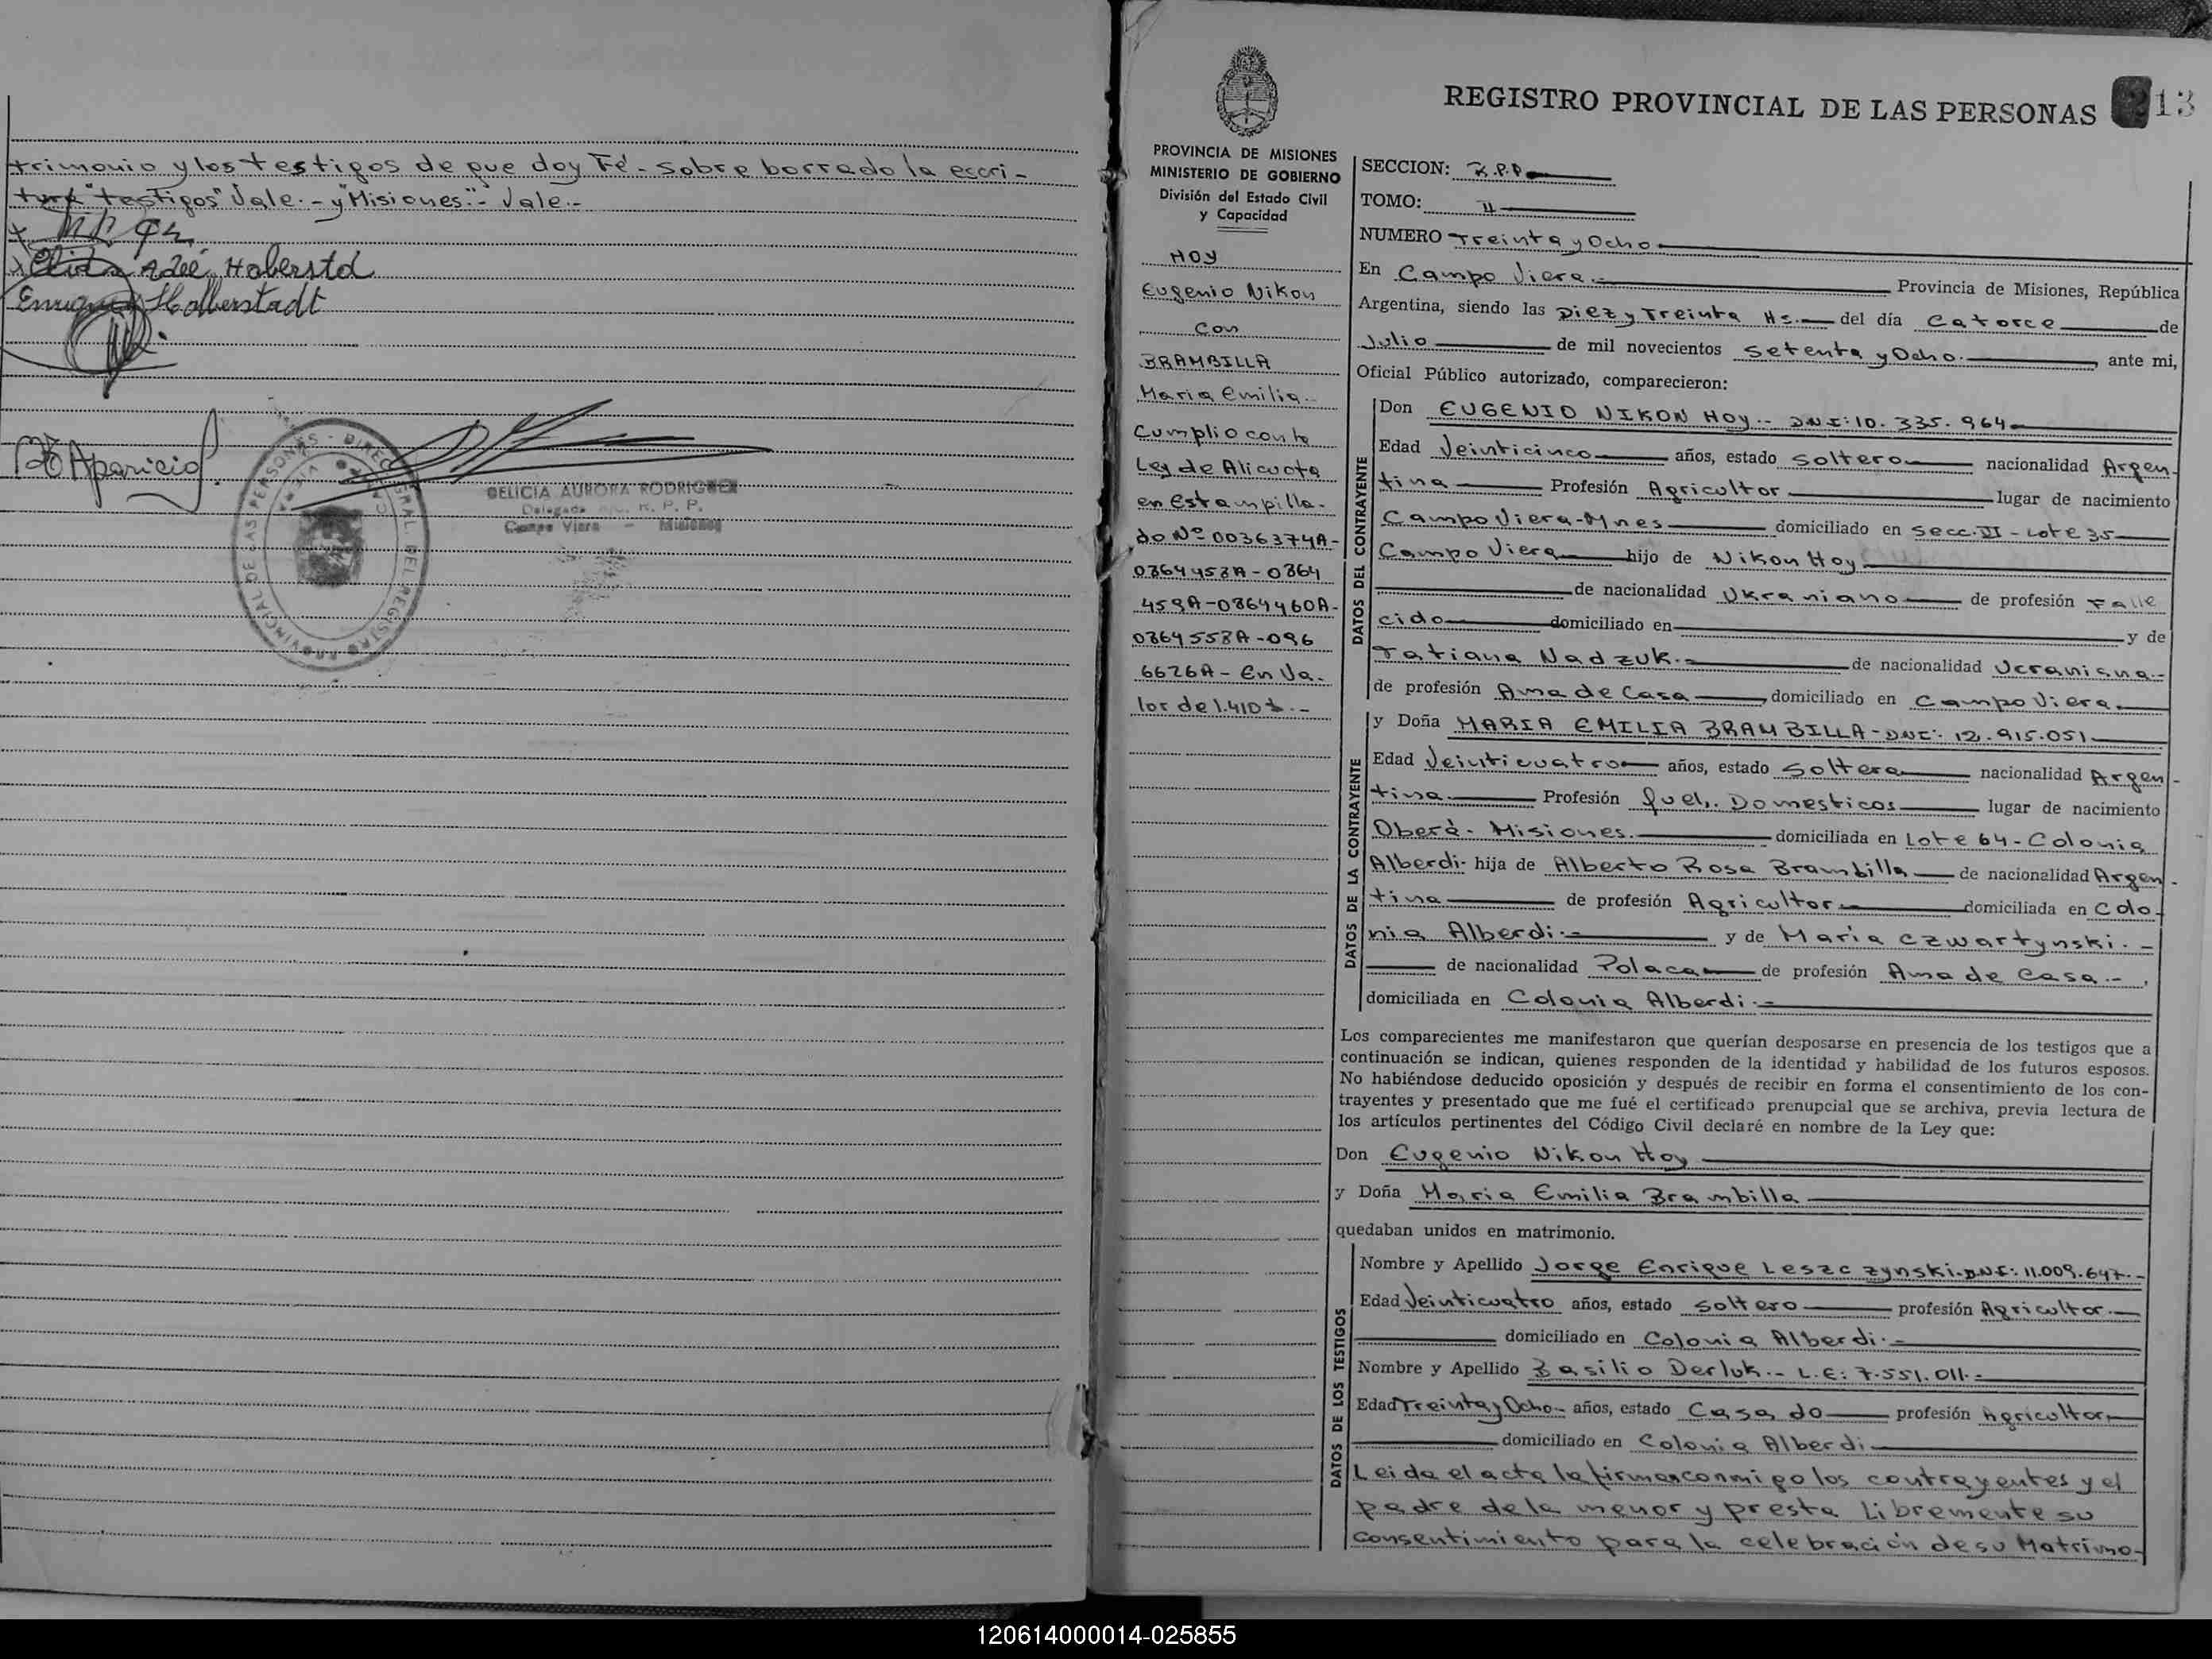 trimonio y los testigos de que doy Fé - sobre borrado la escri-
tura "testigos" Vale.- y "Misiones".- Vale.-
Haberstd
Enrique Halberstadt
Aparicio
AURORA RODRIGUEZ
R. P. P.
Campo Viera - Misiones
REGISTRO PROVINCIAL DE LAS PERSONAS
213
PROVINCIA DE MISIONES
MINISTERIO DE GOBIERNO
División del Estado Civil
y Capacidad
HOY
Eugenio Nikon
con
BRAMBILLA
Maria Emilia.-
Cumplio con la
Ley de Alicuota
en Estampilla-
do Nº 0036374A-
0864458A-0864
459A-0864460A-
0864558A-096
6626A- En Va-
lor de 1.410 $.-
SECCION: R.P.P
TOMO: II
NUMERO Treinta y Ocho
En Campo Viera.- Provincia de Misiones, República
Argentina, siendo las Diez y Treinta Hs.- del día Catorce de
Julio de mil novecientos setenta y Ocho.- ante mi,
Oficial Público autorizado, comparecieron:
DATOS DEL CONTRAYENTE
Don EUGENIO NIKON HOY.- DNI: 10.335.964
Edad Veinticinco años, estado soltero nacionalidad Argen-
tina Profesión Agricultor lugar de nacimiento
Campo Viera-Mnes domiciliado en Secc. II - Lote 35
Campo Viera hijo de Nikon Hoy
de nacionalidad Ukraniano de profesión Falle
cido domiciliado en y de
Tatiana Nadzuk.- de nacionalidad Ucraniana.-
de profesión Ama de Casa domiciliado en Campo Viera
DATOS DE LA CONTRAYENTE
y Doña MARIA EMILIA BRAMBILLA - DNI: 12.915.051
Edad Veinticuatro años, estado soltera nacionalidad Argen-
tina Profesión Queh. Domesticos lugar de nacimiento
Oberá - Misiones. domiciliada en Lote 64 - Colonia
Alberdi- hija de Alberto Rosa Brambilla de nacionalidad Argen-
tina de profesión Agricultor domiciliada en Colo-
nia Alberdi.- y de Maria Czwartynski.-
de nacionalidad Polaca de profesión Ama de Casa.-,
domiciliada en Colonia Alberdi.-
Los comparecientes me manifestaron que querían desposarse en presencia de los testigos que a
continuación se indican, quienes responden de la identidad y habilidad de los futuros esposos.
No habiéndose deducido oposición y después de recibir en forma el consentimiento de los con-
trayentes y presentado que me fué el certificado prenupcial que se archiva, previa lectura de
los artículos pertinentes del Código Civil declaré en nombre de la Ley que:
Don Eugenio Nikon Hoy
y Doña Maria Emilia Brambilla
quedaban unidos en matrimonio.
DATOS DE LOS TESTIGOS
Nombre y Apellido Jorge Enrique Leszczynski.- DNI: 11.009.647.-
Edad Veinticuatro años, estado soltero profesión Agricultor.
domiciliado en Colonia Alberdi.-
Nombre y Apellido Basilio Derluk.- L.E: 7.551.011.-
Edad Treinta y Ocho- años, estado Casado profesión Agricultor
domiciliado en Colonia Alberdi
Leida el acta la firman conmigo los contrayentes y el
padre de la menor y presta Libremente su
consentimiento para la celebración de su Matrimo-
120614000014-025855